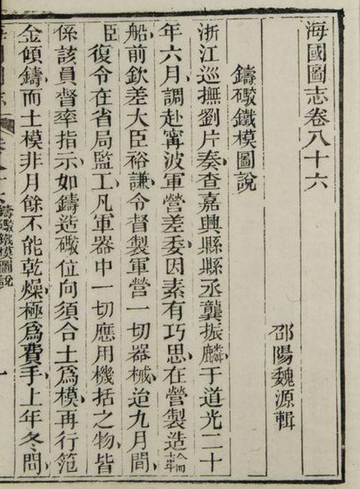 海國圖志卷八十六
邵陽魏源輯
鑄礮鐵模圖說
浙江巡撫劉片奏查嘉興縣縣丞龔振麟于道光二十
年六月調赴寗波軍營差委因素有巧思在營製造
船前欽差大臣裕謙令督製軍營一切器械迨九月間
臣復令在省局監工凡軍器中一切應用機括之物皆
係該員督率指示如鑄造礮位向須合土爲模再行笵
金傾鑄而土模非月餘不能乾燥極爲費手上年冬間
鑄礮鐵模圖說
一